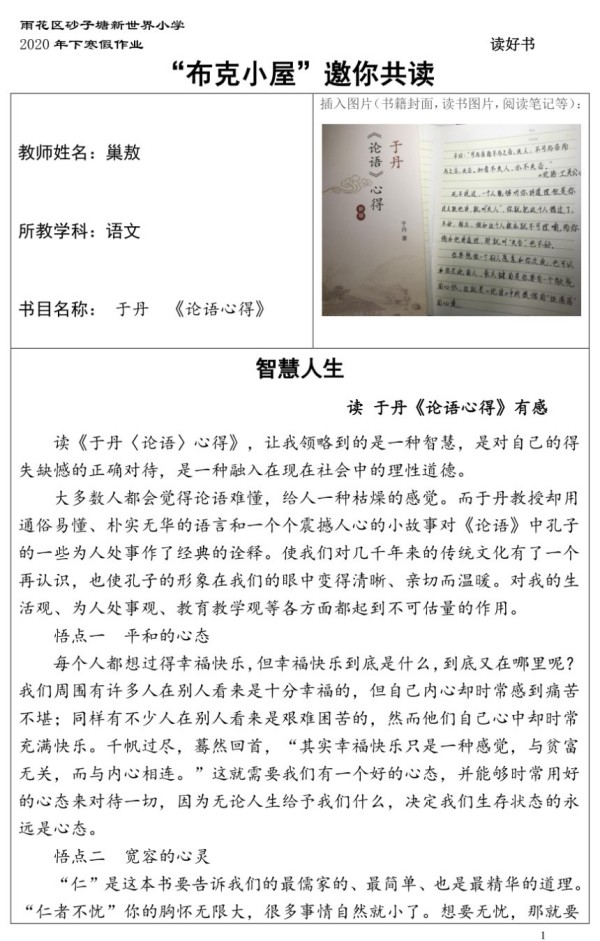 雨花区砂子塘新世界小学
2020年下寒假作业 读好书
“布克小屋”邀你共读
教师姓名：巢敖
所教学科：语文
书目名称： 于丹 《论语心得》
插入图片（书籍封面，读书图片，阅读笔记等）：
于丹
《论语》
心得
智慧人生
读 于丹《论语心得》有感
读《于丹〈论语〉心得》，让我领略到的是一种智慧，是对自己的得
失缺憾的正确对待，是一种融入在现在社会中的理性道德。
大多数人都会觉得论语难懂，给人一种枯燥的感觉。而于丹教授却用
通俗易懂、朴实无华的语言和一个个震撼人心的小故事对《论语》中孔子
的一些为人处事作了经典的诠释。使我们对几千年来的传统文化有了一个
再认识，也使孔子的形象在我们的眼中变得清晰、亲切而温暖。对我的生
活观、为人处事观、教育教学观等各方面都起到不可估量的作用。
悟点一 平和的心态
每个人都想过得幸福快乐，但幸福快乐到底是什么，到底又在哪里呢？
我们周围有许多人在别人看来是十分幸福的，但自己内心却时常感到痛苦
不堪；同样有不少人在别人看来是艰难困苦的，然而他们自己心中却时常
充满快乐。千帆过尽，蓦然回首，“其实幸福快乐只是一种感觉，与贫富
无关，而与内心相连。”这就需要我们有一个好的心态，并能够时常用好
的心态来对待一切，因为无论人生给予我们什么，决定我们生存状态的永
远是心态。
悟点二 宽容的心灵
“仁”是这本书要告诉我们的最儒家的、最简单、也是最精华的道理。
“仁者不忧”你的胸怀无限大，很多事情自然就小了。想要无忧，那就要
1